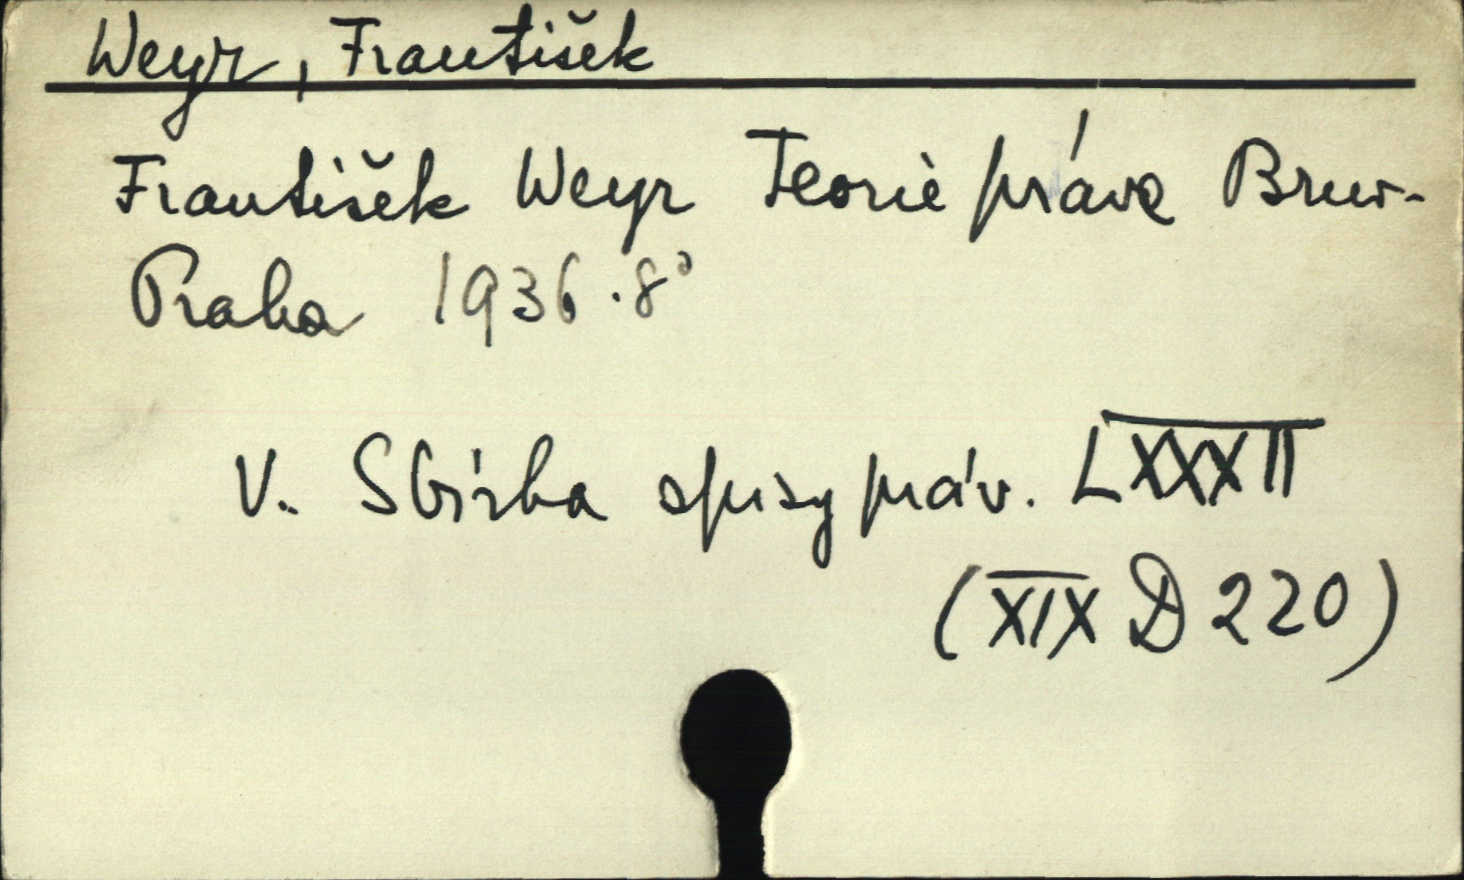 Weyr, František
František Weyr Teorie práva Brno-
Praha 1936. 8°
V. Sbírka spisy práv. LXXXII
(XIX D 220)